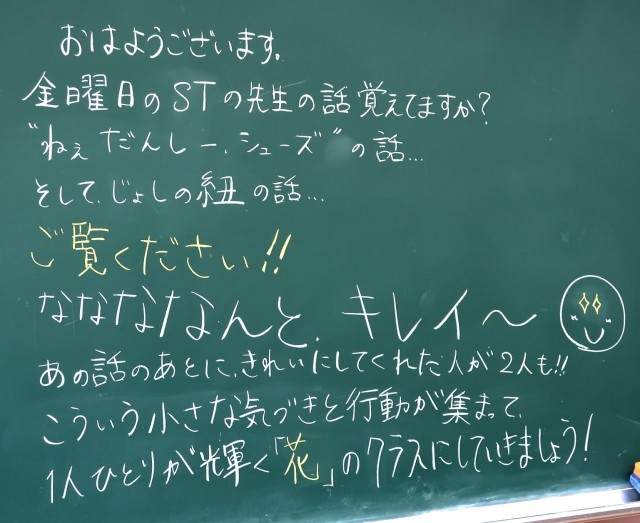 おはようございます。
金曜日のSTの先生の話覚えてますか?
"ねぇ だんしー、シューズ"の話...
そして、じょしの紐の話...
ご覧ください!!
なななななんと、キレイ〜
あの話のあとに、きれいにしてくれた人が2人も!!
こういう小さな気づきと行動が集まって、
1人ひとりが輝く「花」のクラスにしていきましょう!